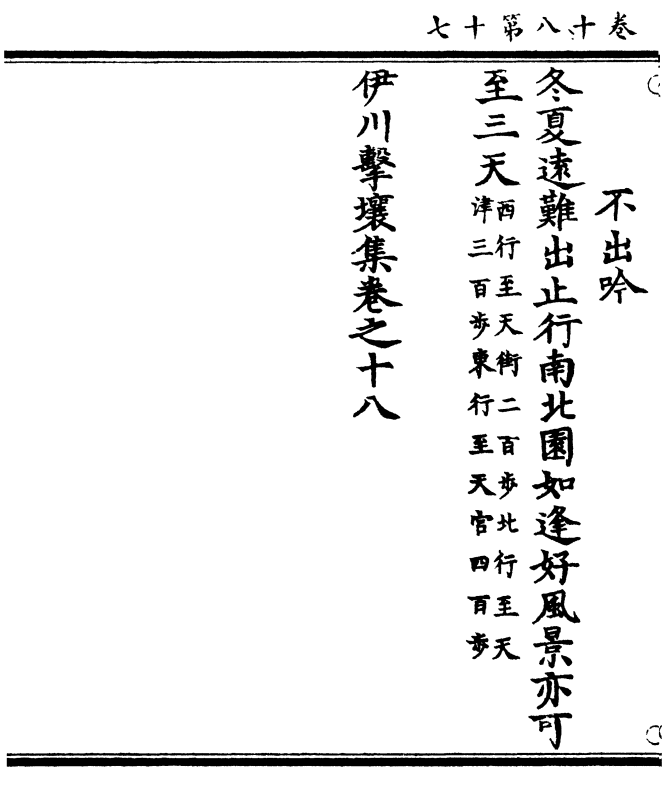 卷十八第十七
不出吟
冬夏遠難出止行南北園如逢好風景亦可
至三天西行至天街二百步北行至天
津三百步東行至天宫四百步
伊川擊壤集卷之十八